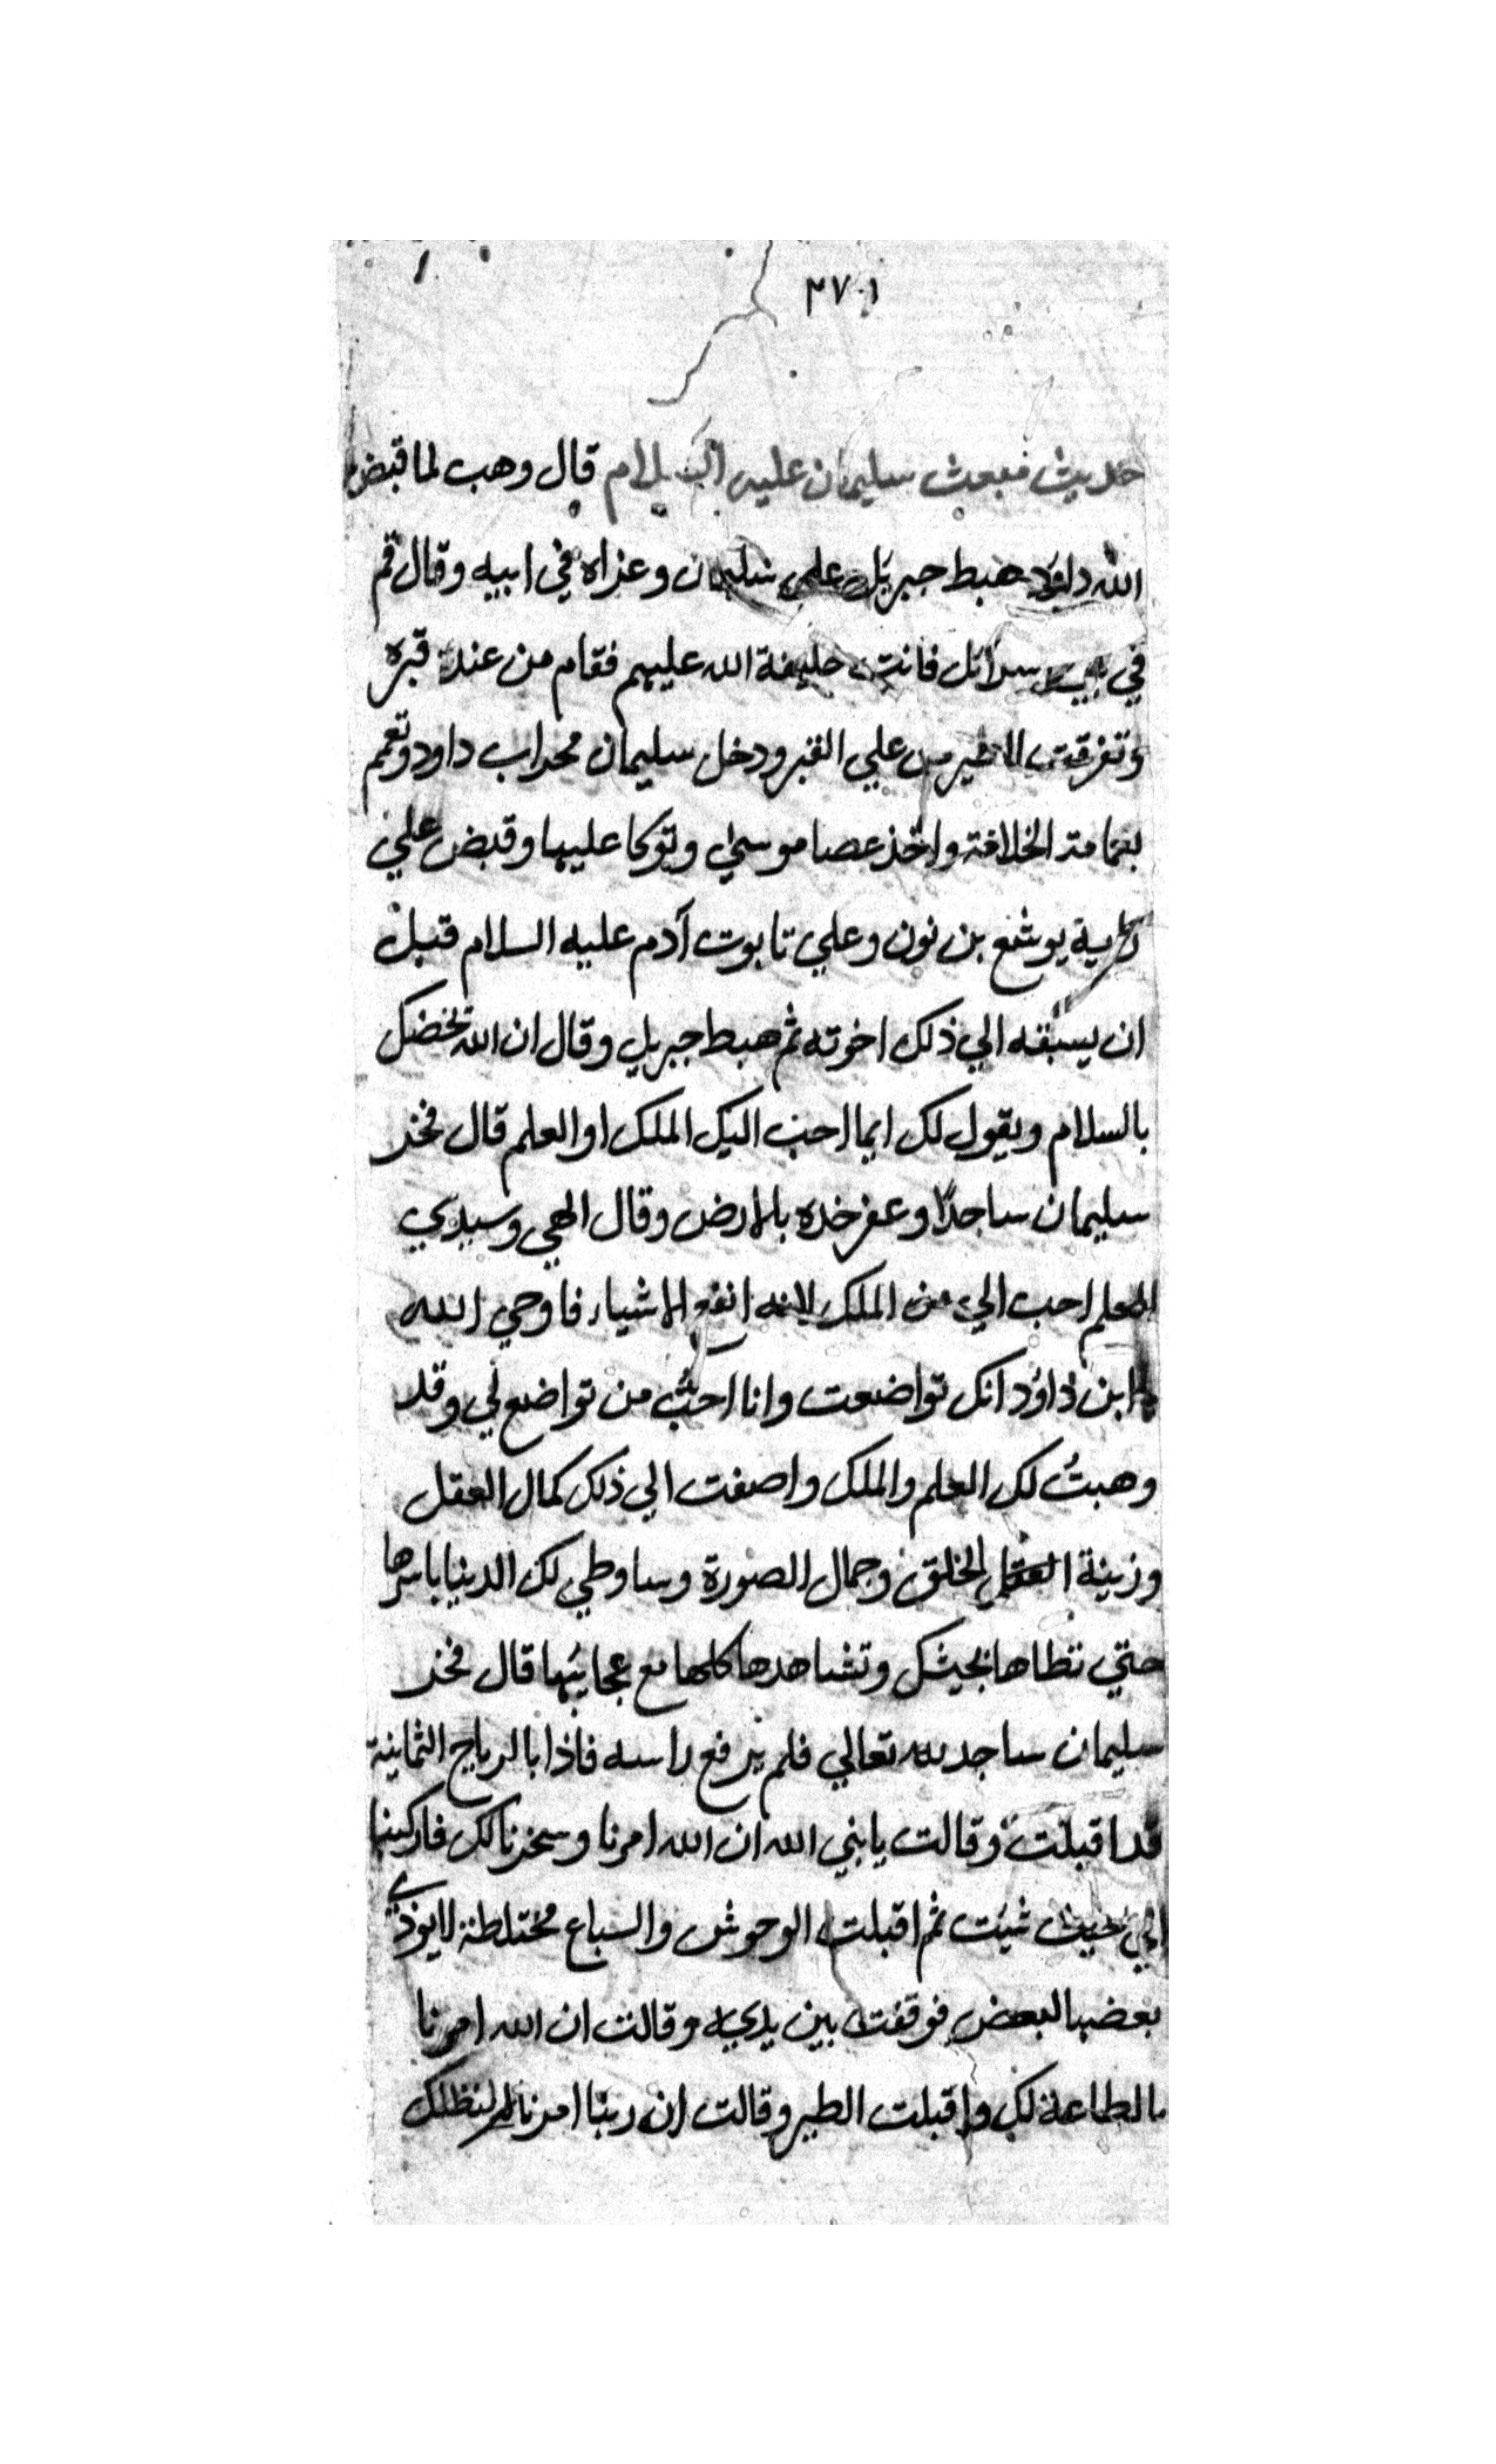 ٣٧٠١
حديث مبعث سليمان عليه السلام قال وهب لما قبض
الله داود هبط جبريل على سليمان وعزاه في ابيه وقال قم
في سرائل فانت خليفة الله عليهم فقام من عند قبره
وتفرقت الطير من علي القبر ودخل سليمان محراب داود وتعمم
بعمامة الخلافة واتخذ عصا موسي وتوكا عليها وقبض علي
يوشع بن نون وعلي تابوت آدم عليه السلام قبل
ان يسبقه الي ذلك اخوته ثم هبط جبريل وقال ان الله يخصك
بالسلام ويقول لك ايما احب اليك الملك او العلم قال فخر
سليمان ساجدًا وعفر خده بالارض وقال الهي وسيدي
العلم احب الي من الملك لانه انفع الاشياء فاوحي الله
ابن داود انك تواضعت وانا احبُّ من تواضع لي وقد
وهبتُ لك العلم والملك واضفت الي ذلك كمال العقل
وزينة الخلق وجمال الصورة وساوطي لك الدنيا باسرها
حتي تطاها بجيشك وتشاهدها كلها مع عجايبها قال فخر
سليمان ساجد لله تعالي فلم يرفع راسه فاذا بالرياح الثمانية
قد اقبلت وقالت يا نبي الله ان الله امرنا وسخرنا لك فاركبنا
الي حيث شيت ثم اقبلت الوحوش والسباع مختلطة لا يوذي
بعضها لبعض فوقفت بين يديه وقالت ان الله امرنا
بالطاعة لك واقبلت الطير وقالت ان ربنا امرنا لنظلك